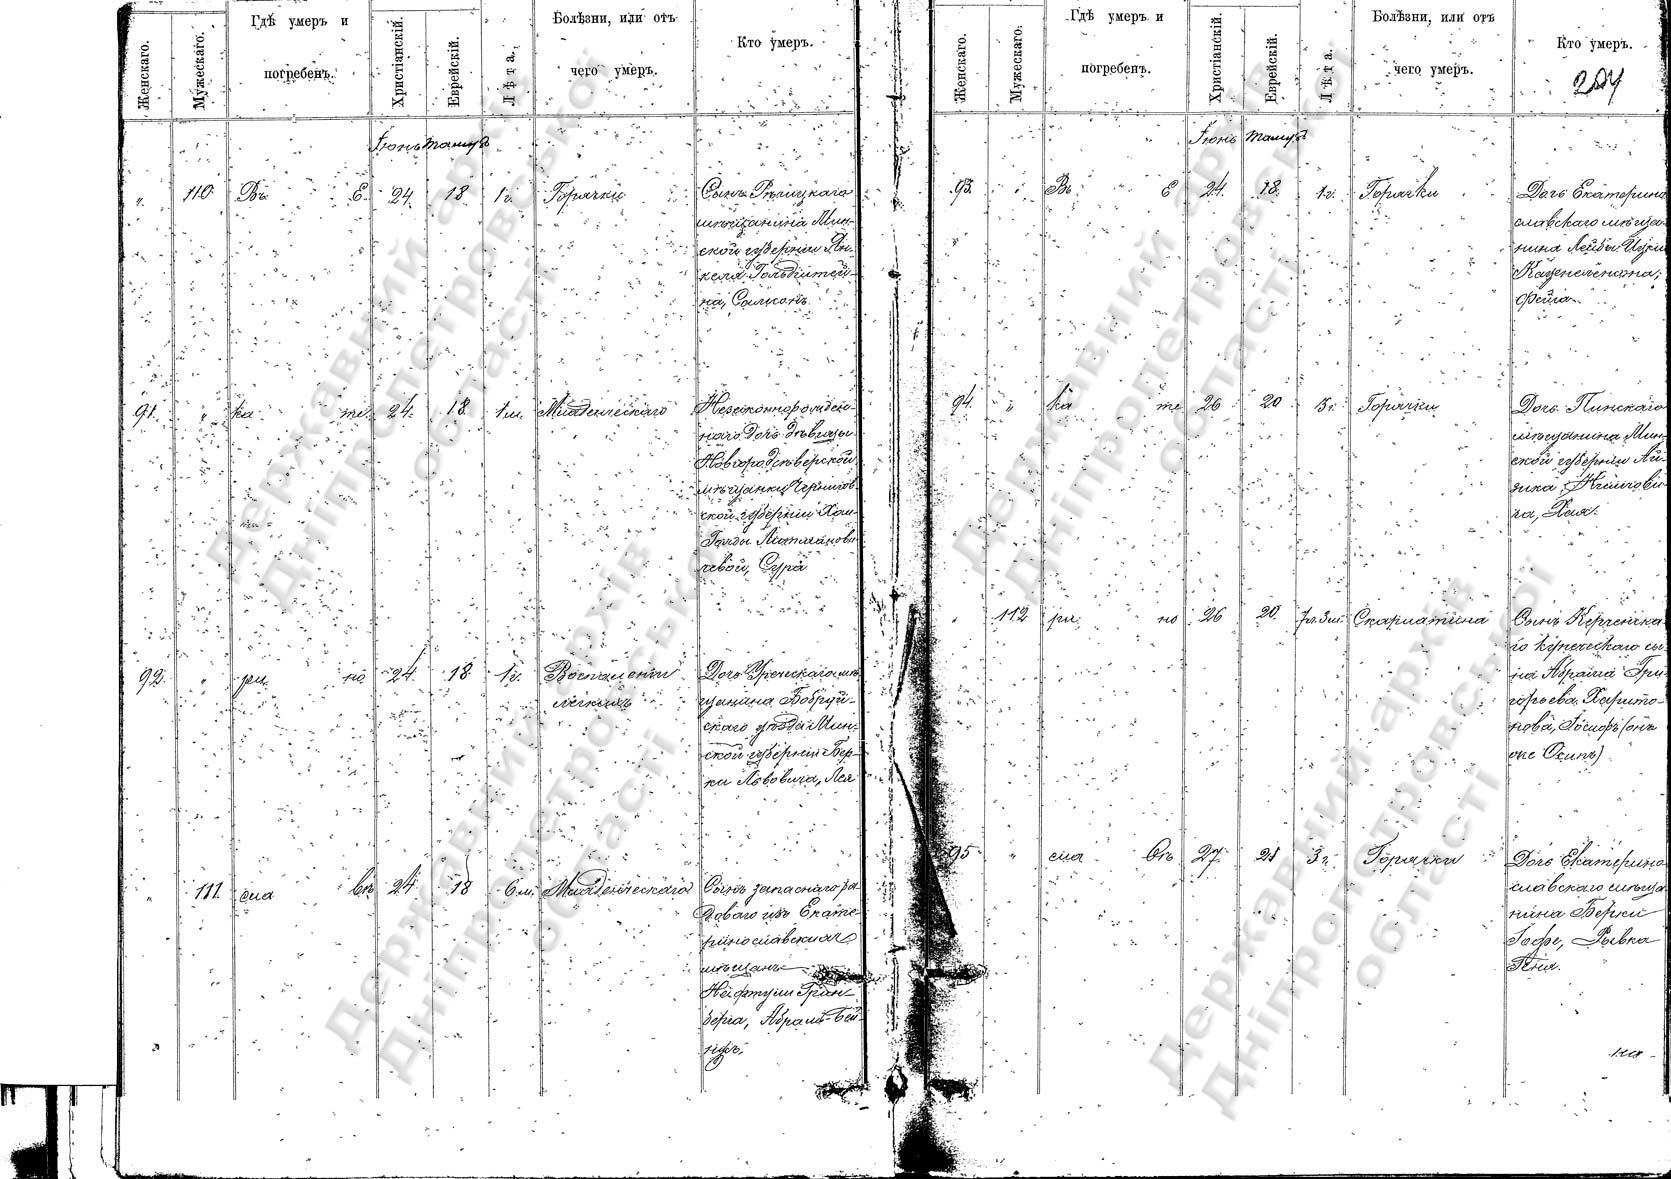 Женскаго.
Мужескаго.
Гдѣ умеръ и
погребенъ.
Христіанскій.
Еврейскій.
Лѣта.
Болѣзни, или отъ
чего умеръ.
Кто умеръ.
Іюнь Тамузъ
" 110 Въ Е 24 18 1 г. Горячки
Сынъ Рѣчицкаго
мѣщанина Мин-
ской губерніи Ян-
келя Гольдштей-
на, Саломонъ
91. " ка те 24. 18. 1 м. Младенческаго
Незаконнорожден-
наго Дочь дѣвицы
Новгородсѣверской
мѣщанки Чернигов
ской губерніи Хаи
Гольды
чевой, Сура
92. " ри но 24 18 1 г. Воспаленія
легкихъ
Дочь мѣ-
щанина Бобруй-
скаго уѣзда Мин-
ской губерніи Бер-
ки Львовича, Лея
" 111. сла въ 24 18 6 м. Младенческаго
Сынъ запаснаго ря
доваго изъ Екате-
ринославскихъ
мѣщанъ
Нафтули Грин-
берга, Абрамъ-Бей-
Женскаго.
Мужескаго.
Гдѣ умеръ и
погребенъ.
Христіанскій.
Еврейскій.
Лѣта.
Болѣзни, или отъ
чего умеръ.
Кто умеръ.
204
Іюнь Тамузъ
93. " Въ Е 24. 18. 1 г. Горячки
Дочь Екатерино
славскаго мѣща-
нина Лейбы Ицки
Каценеленсона,
Фейга
94. " ка те 26 20 5 г. Горячки
Дочь Пинскаго
мѣщанина Мин-
ской губерніи Ай-
зика
ча, Хая.
" 112 ри но 26 20. 7 л. 3 м. Скарлатина
Сынъ Керченска-
го купеческаго сы-
на Абрама Гри-
горьева Харито-
нова, Іосифъ (онъ
же Осипъ)
95 " сла въ 27 21 3 г. Горячки
Дочь Екатерино
славскаго мѣща
нина Берки
Гофе, Рывка
Геня.
Державний архів
Дніпропетровської
області
Державний архів
Дніпропетровської
області
Державний архів
Дніпропетровської
області
Державний архів
Дніпропетровської
області